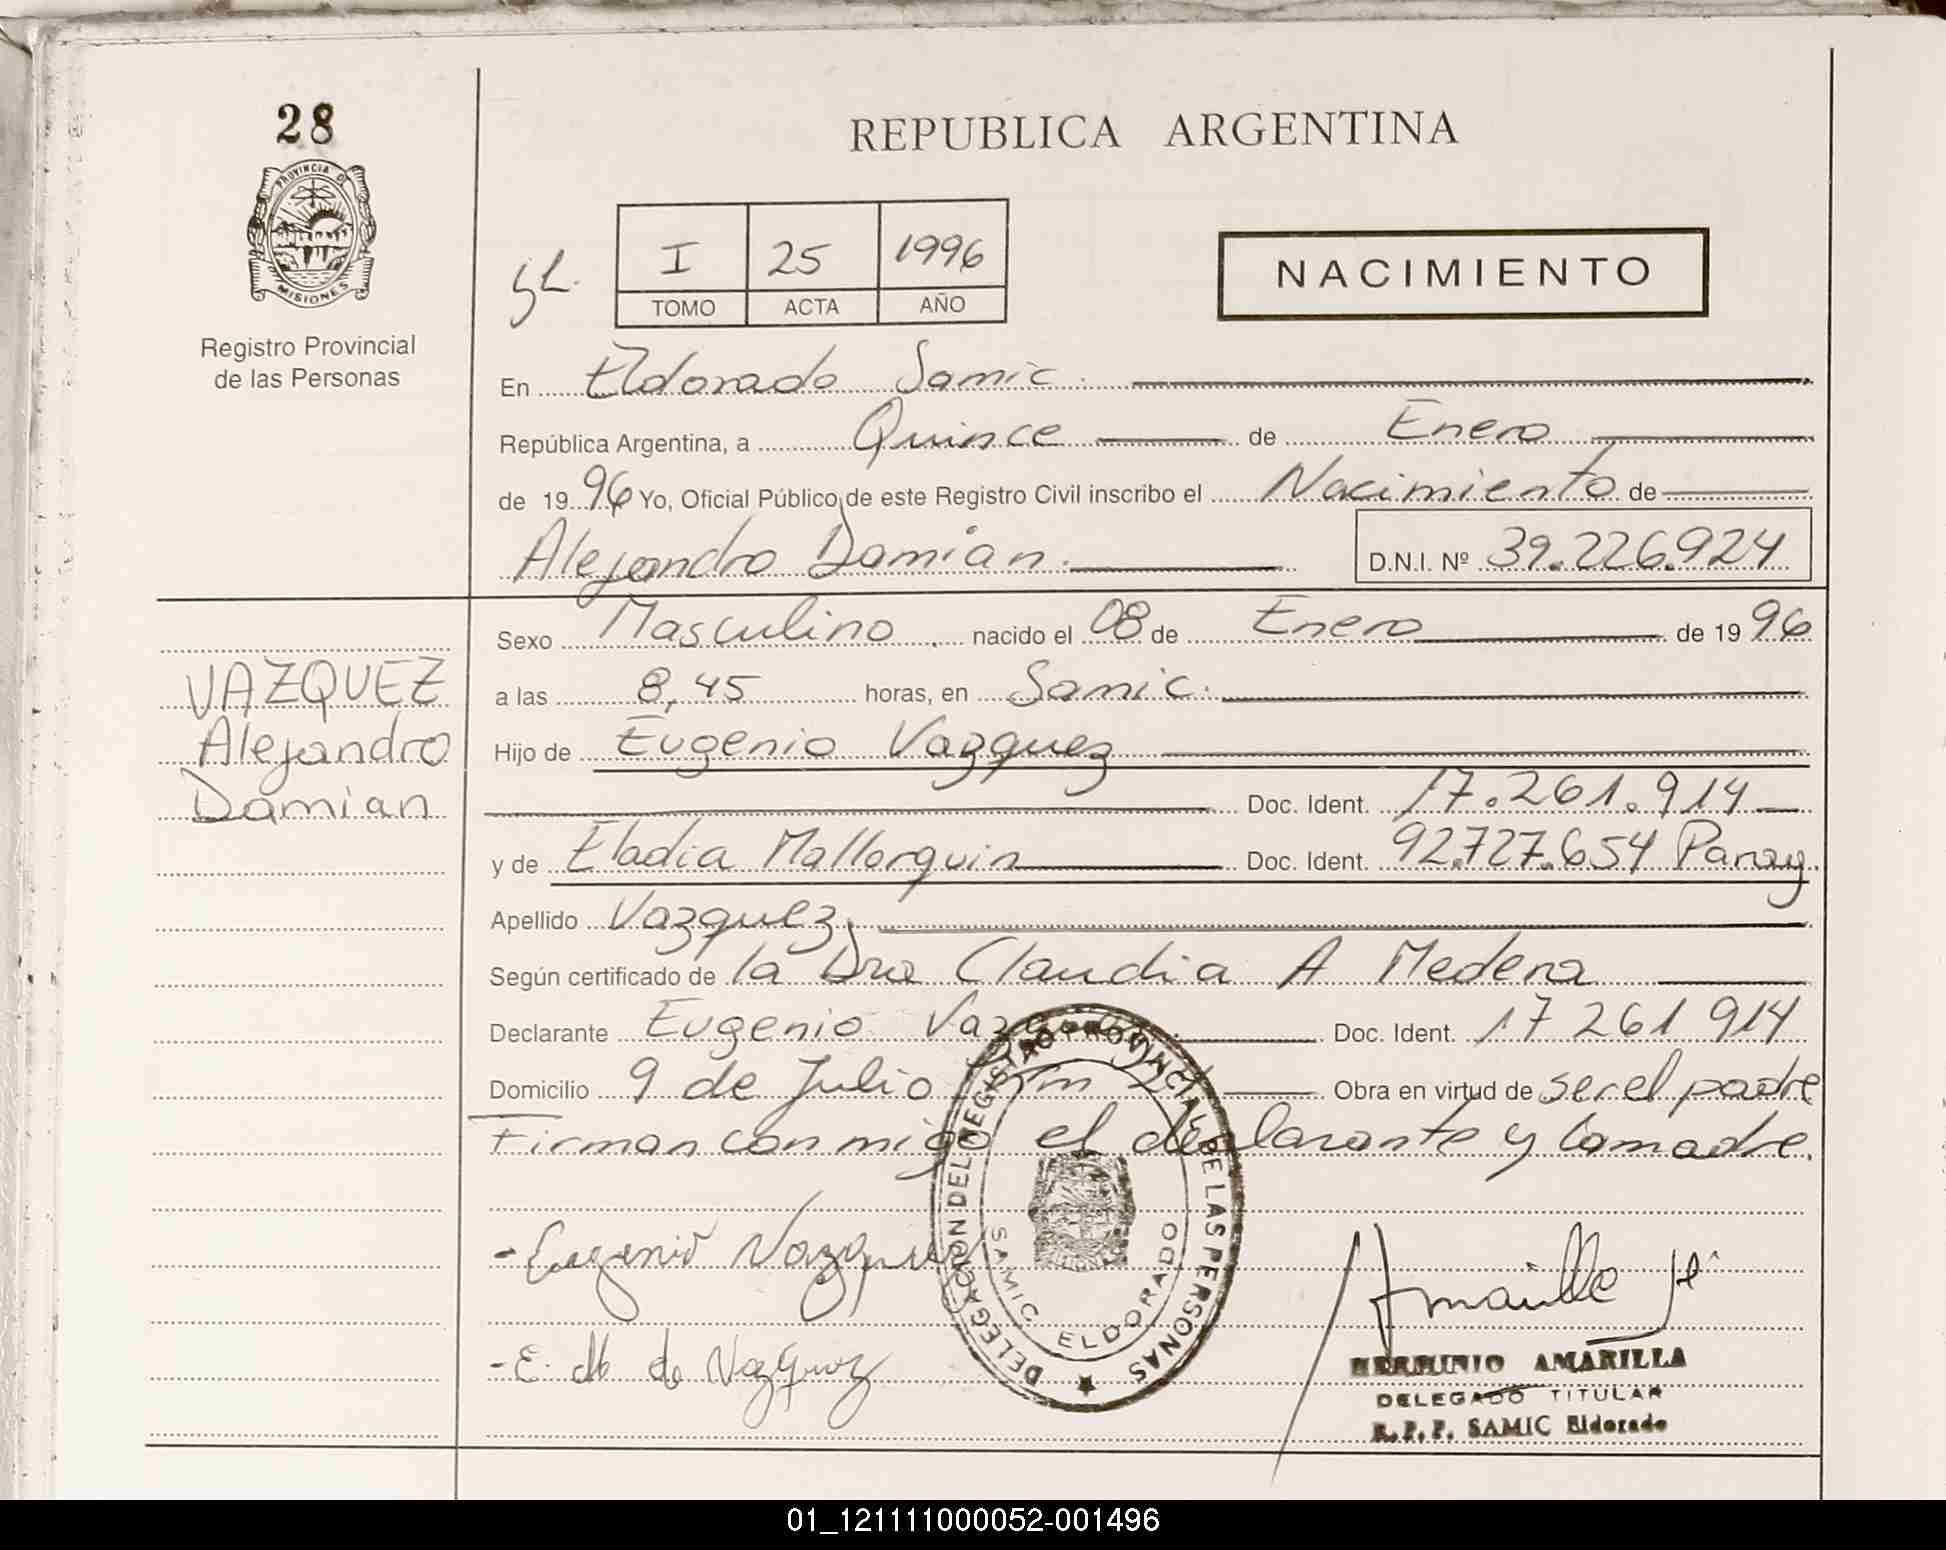 28
PROVINCIA DE
MISIONES
Registro Provincial
de las Personas
REPUBLICA ARGENTINA
I 25 1996
TOMO ACTA AÑO
NACIMIENTO
En Eldorado Samic.
República Argentina, a Quince de Enero
de 1996 Yo, Oficial Público de este Registro Civil inscribo el Nacimiento de
Alejandro Damian. D.N.I. Nº 39.226.924
VAZQUEZ
Alejandro
Damian
Sexo Masculino nacido el 08 de Enero de 1996
a las 8,45 horas, en Samic.
Hijo de Eugenio Vazquez
Doc. Ident. 17.261.914
y de Eladia Mallorquin Doc. Ident. 92.727.654 Paray.
Apellido Vazquez
Según certificado de la Dra Claudia A Medera
Declarante Eugenio Vazquez Doc. Ident. 17 261 914
Domicilio 9 de Julio Km Obra en virtud de ser el padre
Firman con migo el declarante y la madre.
- Eugenio Vazquez
- E. M de Vazquez
DELEGACION DEL REGISTRO PROVINCIAL DE LAS PERSONAS
SAMIC ELDORADO
HERMINIO AMARILLA
DELEGADO TITULAR
R.P.P. SAMIC Eldorado
01_121111000052-001496